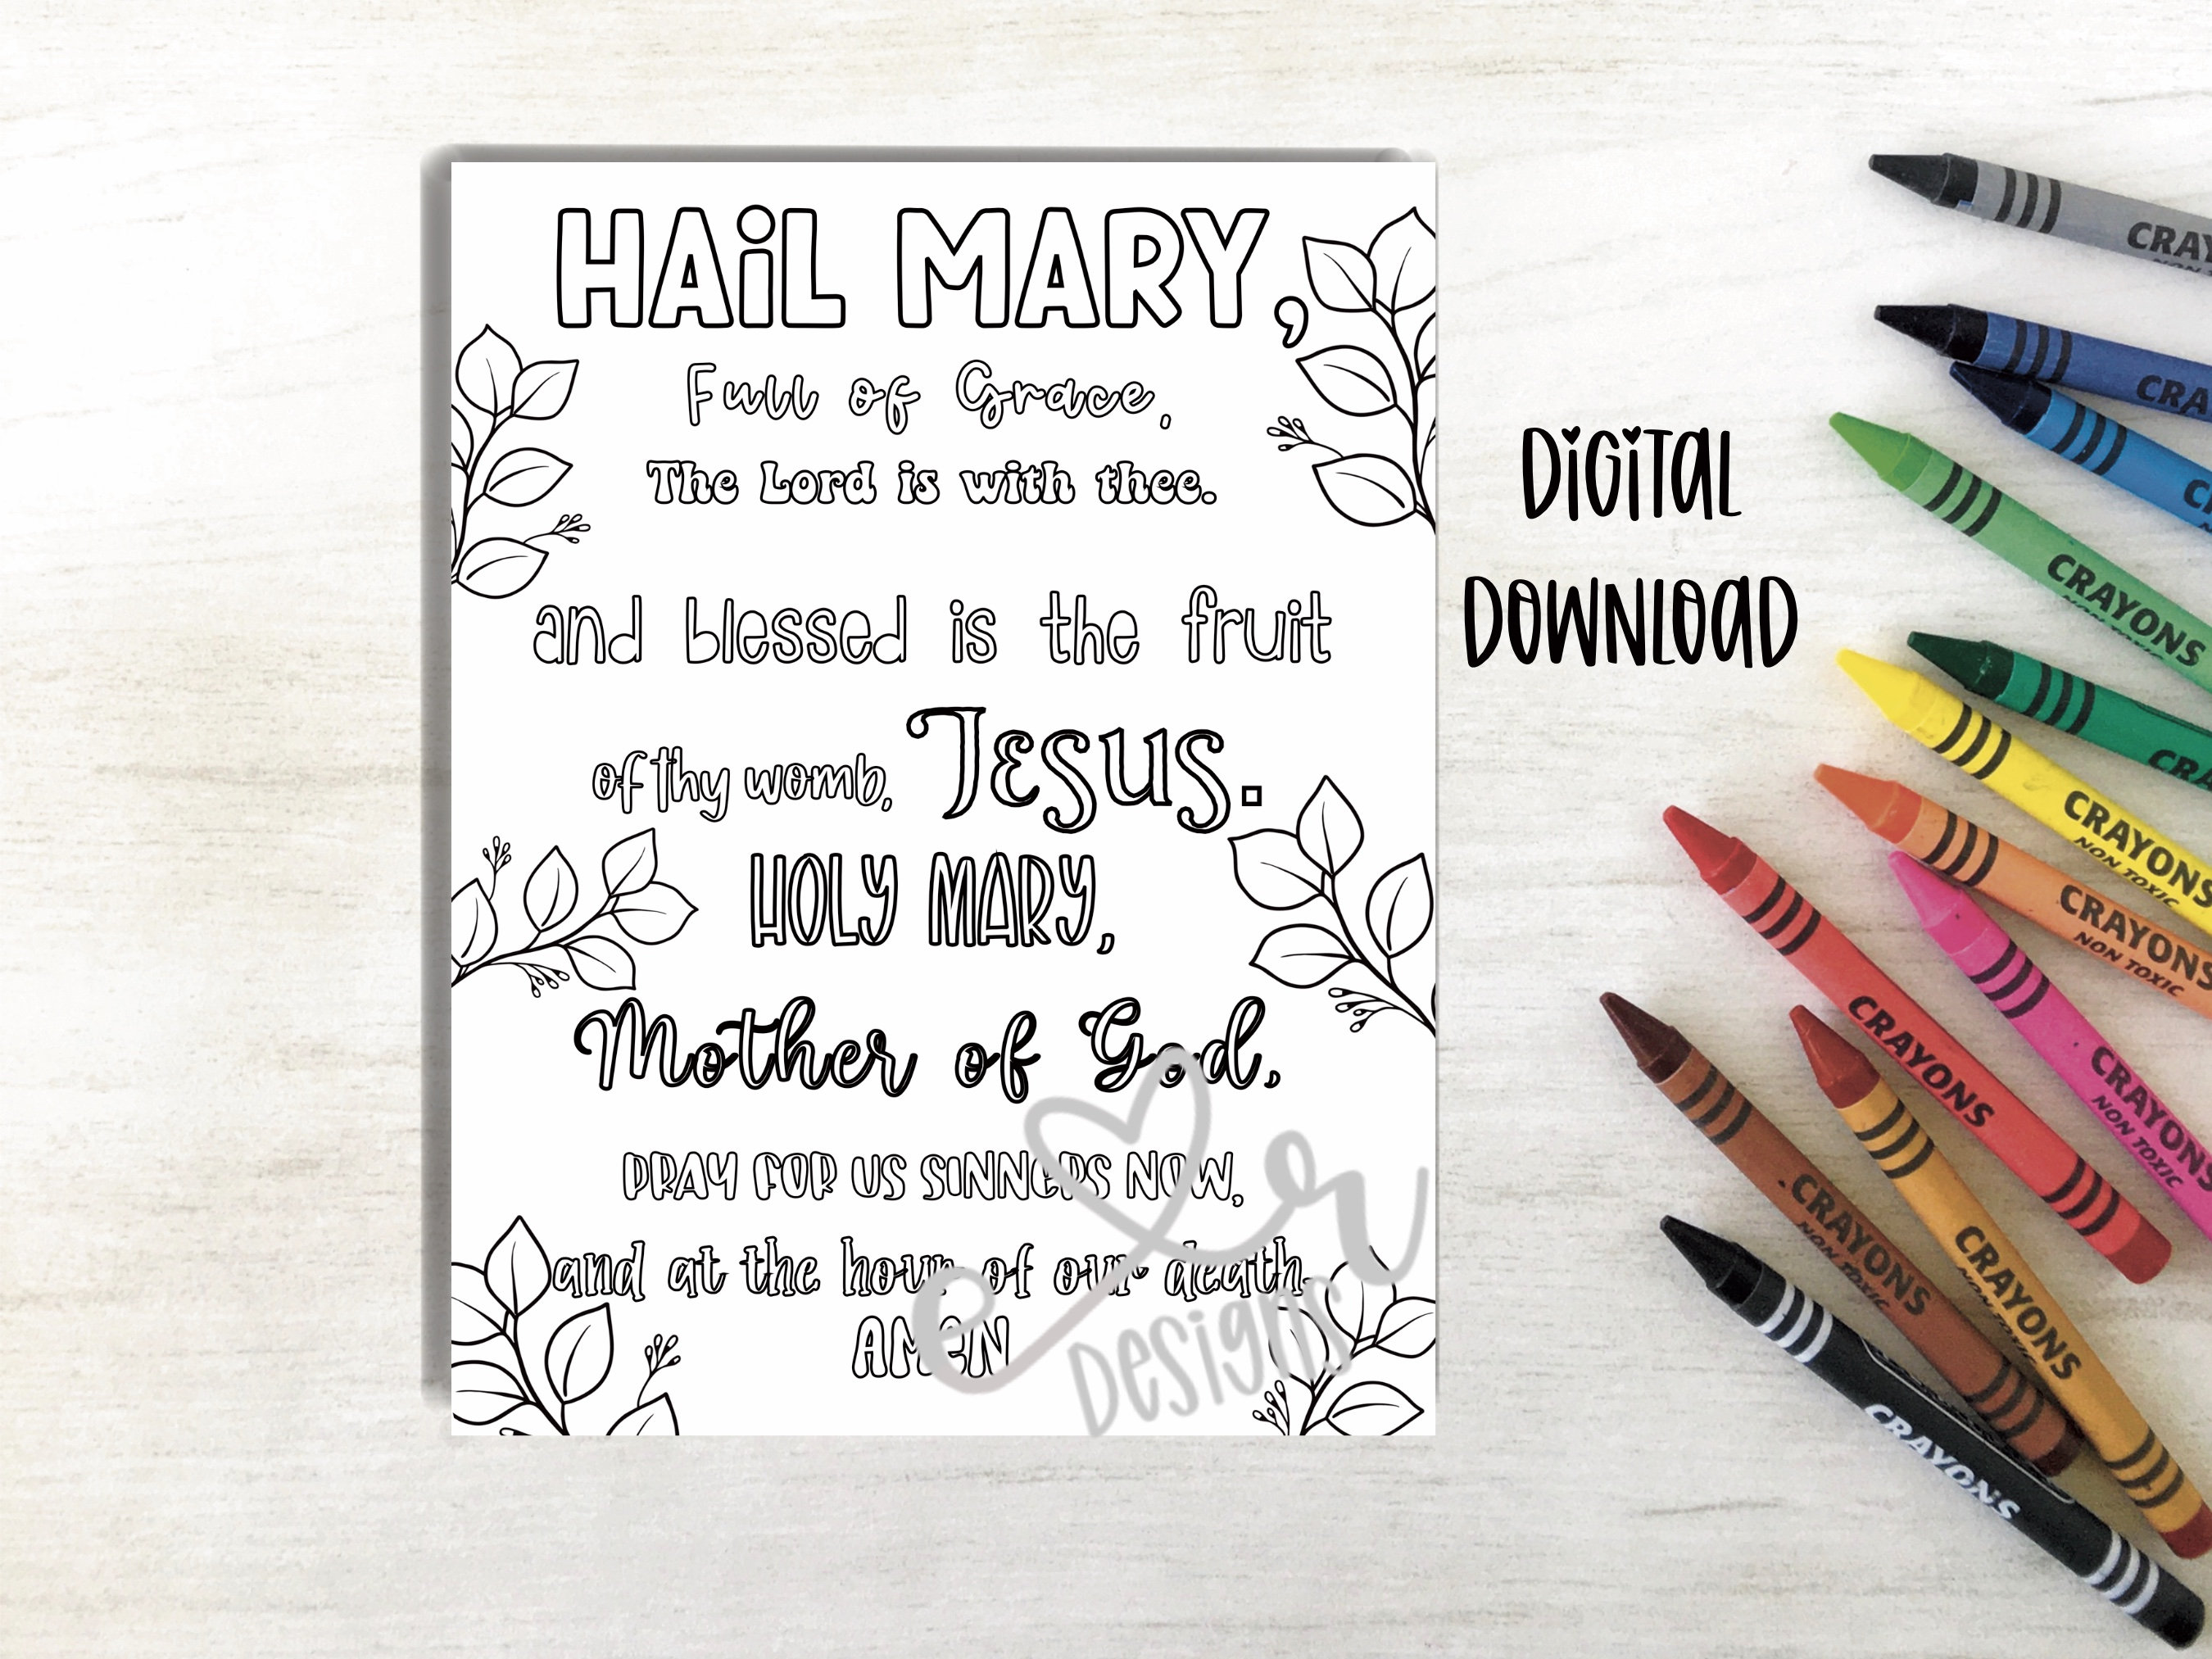 HAIL MARY,
Full of Grace,
The Lord is with thee.
and blessed is the fruit
of thy womb, Jesus.
HOLY MARY,
Mother of God,
PRAY FOR US SINNERS NOW,
and at the hour of our death.
AMEN
e r
Designs
DIGITAL
DOWNLOAD
CRAY
CRA
CRAYONS
CRA
CRAYONS
NON TOXIC
CRAYONS
NON TOXIC
CRAYONS
CRAYONS
NON TOXIC
CRAYONS
NON TOXIC
CRAYONS
CRAYONS